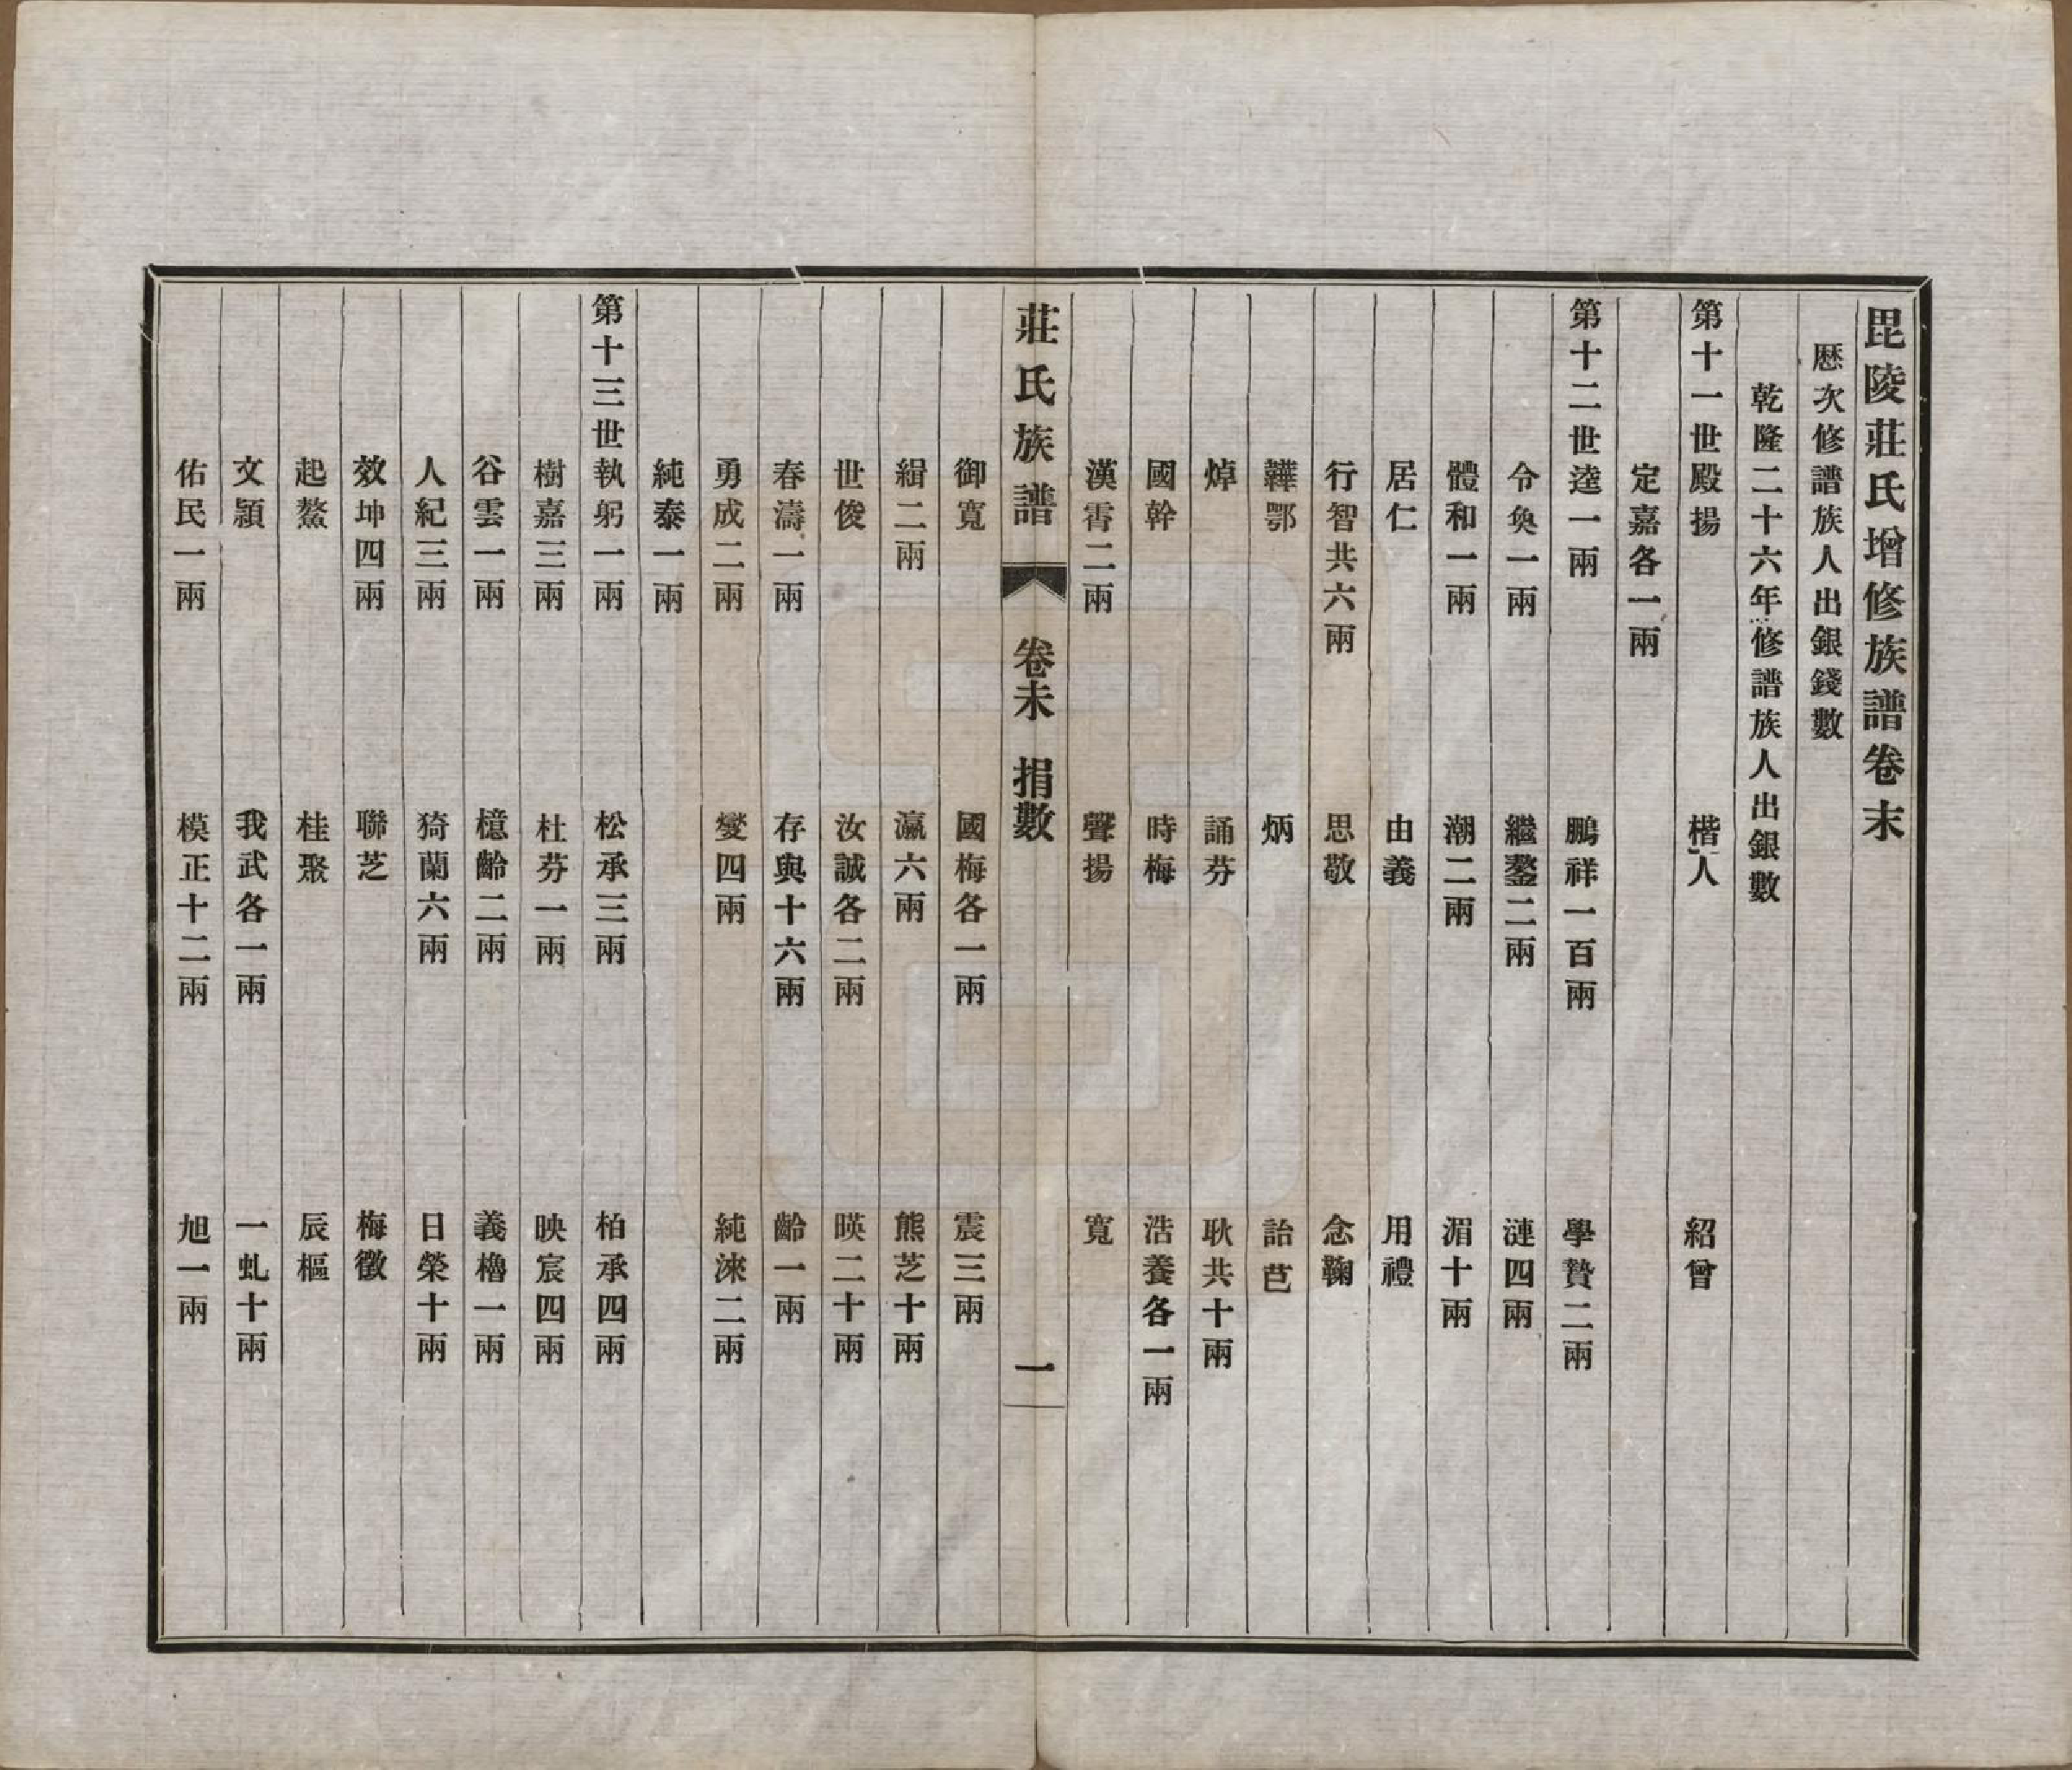 毘陵莊氏增修族譜卷末
歷次修譜族人出銀錢數
乾隆二十六年修譜族人出銀數
第十一世殿揚　楷人　紹曾
定嘉各一兩
第十二世逵一兩　鵬祥一百兩　學贄二兩
令奐一兩　繼鏊二兩　漣四兩
體和一兩　潮二兩　湄十兩
居仁　由義　用禮
行智共六兩　思敬　念鞠
韡鄂　炳　詒芑
焯　誦芬　耿共十兩
國幹　時梅　浩養各一兩
漢霄二兩　聲揚　寬
莊氏族譜　卷末　捐數　一
御寬　國梅各一兩　震三兩
緝二兩　瀛六兩　熊芝十兩
世俊　汝誠各二兩　暎二十兩
春濤一兩　存與十六兩　齡一兩
勇成二兩　燮四兩　純淶二兩
純泰一兩
第十三世執躬一兩　松承三兩　柏承四兩
樹嘉三兩　杜芬一兩　映宸四兩
谷雲一兩　檍齡二兩　義櫓一兩
人紀三兩　猗蘭六兩　日榮十兩
效坤四兩　聯芝　梅徵
起鰲　桂聚　辰樞
文頴　我武各一兩　一虬十兩
佑民一兩　模正十二兩　旭一兩